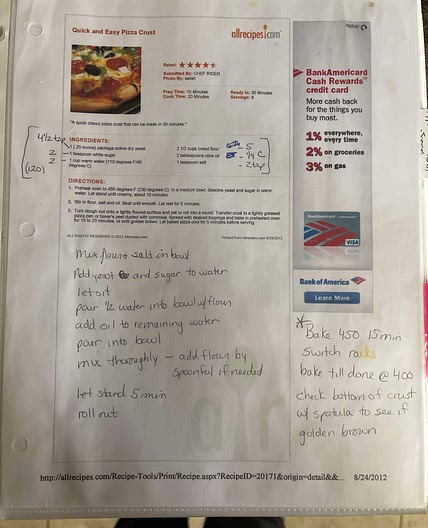 Quick and Easy Pizza Crust
allrecipes.com
Rated:
Submitted By: CHEF RIDER
Photo By: sarah
Prep Time: 10 Minutes
Cook Time: 20 Minutes
Ready In: 30 Minutes
Servings: 8
"A quick chewy pizza crust that can be made in 30 minutes."
INGREDIENTS:
4 1/2 tsp
1 (.25 ounce) package active dry yeast
2 1 teaspoon white sugar
2 1 cup warm water (110 degrees F/45 degrees C)
(120)
2 1/2 cups bread flour 5
2 tablespoons olive oil 1/4 C
1 teaspoon salt 2 tsp
DIRECTIONS:
1. Preheat oven to 450 degrees F (230 degrees C). In a medium bowl, dissolve yeast and sugar in warm
water. Let stand until creamy, about 10 minutes.
2. Stir in flour, salt and oil. Beat until smooth. Let rest for 5 minutes.
3. Turn dough out onto a lightly floured surface and pat or roll into a round. Transfer crust to a lightly greased
pizza pan or baker's peel dusted with cornmeal. Spread with desired toppings and bake in preheated oven
for 15 to 20 minutes, or until golden brown. Let baked pizza cool for 5 minutes before serving.
ALL RIGHTS RESERVED © 2012 Allrecipes.com
Printed from Allrecipes.com 8/24/2012
Mix flour + salt in bowl
Add yeast and sugar to water
let sit
pour 1/2 water into bowl w/flour
add oil to remaining water
pour into bowl
mix thoroughly – add flour by
spoonful if needed
let stand 5 min
roll out
BankAmericard
Cash Rewards™
credit card
More cash back
for the things you
buy most.
1% everywhere,
every time
2% on groceries
3% on gas
VISA
Bank of America
Learn More
* Bake 450 15 min
switch racks
bake till done @ 400
check bottom of crust
w/ spatula to see if
golden brown
http://allrecipes.com/Recipe-Tools/Print/Recipe.aspx?RecipeID=20171&origin=detail&&... 8/24/2012